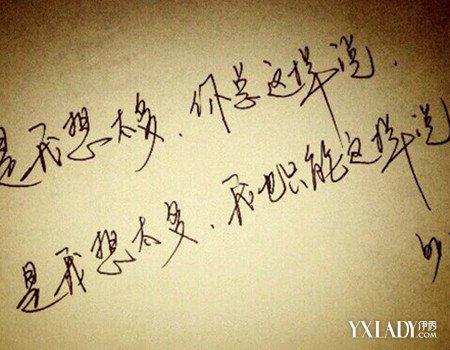 是我想太多.你总这样说.
是我想太多.我也只能这样说
YXLADY.COM伊秀